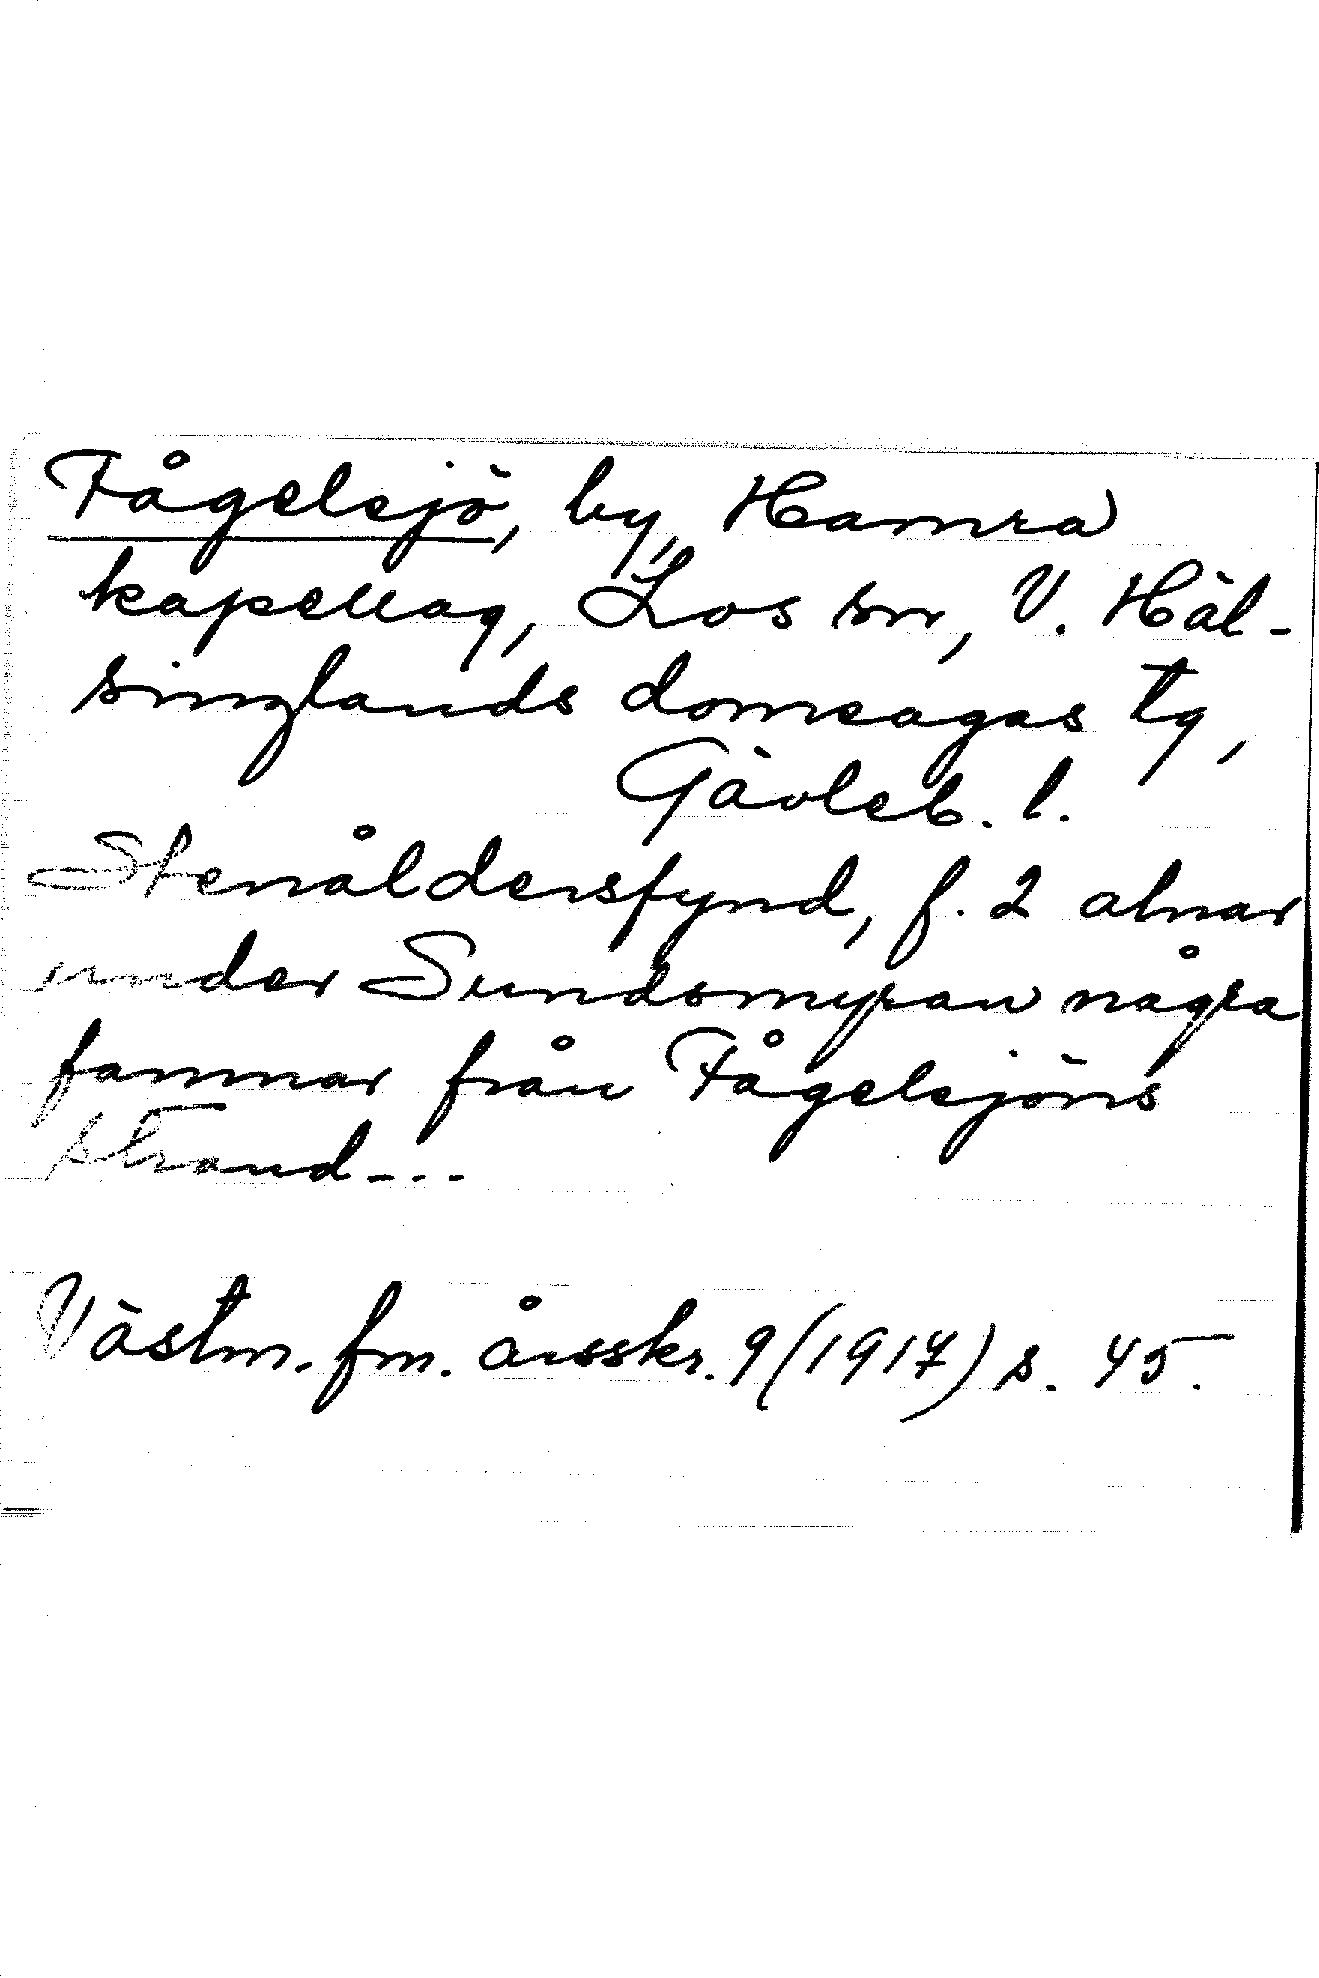 Fågelsjö, by, Hamra
kapellag, Los sn, V. Häl-
singlands domsagas tg,
Gävleb. l.
Stenåldersfynd, f. 2 alnar
under Sundsmyran några
famnar från Fågelsjöns
strand---
Västm. fm. årsskr. 9 (1917) s. 45.